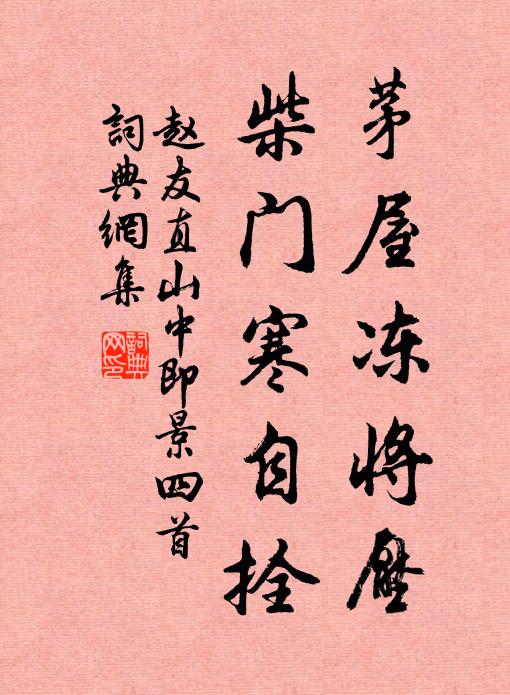 茅屋冻将壓
柴门寒自拴
赵友直山中即景四首
詞典網集
詞典网印